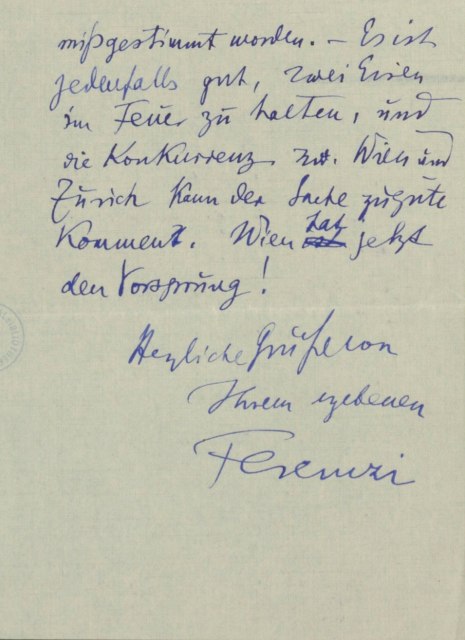 mißgestimmt worden. – Es ist
jedenfalls gut, zwei Eisen
im Feuer zu halten, und
die Konkurrenz zw. Wien und
Zürich kann der Sache zugute
kommen. Wien hat jetzt
den Vorsprung!
Herzliche Grüße von
Ihrem ergebenen
Ferenczi